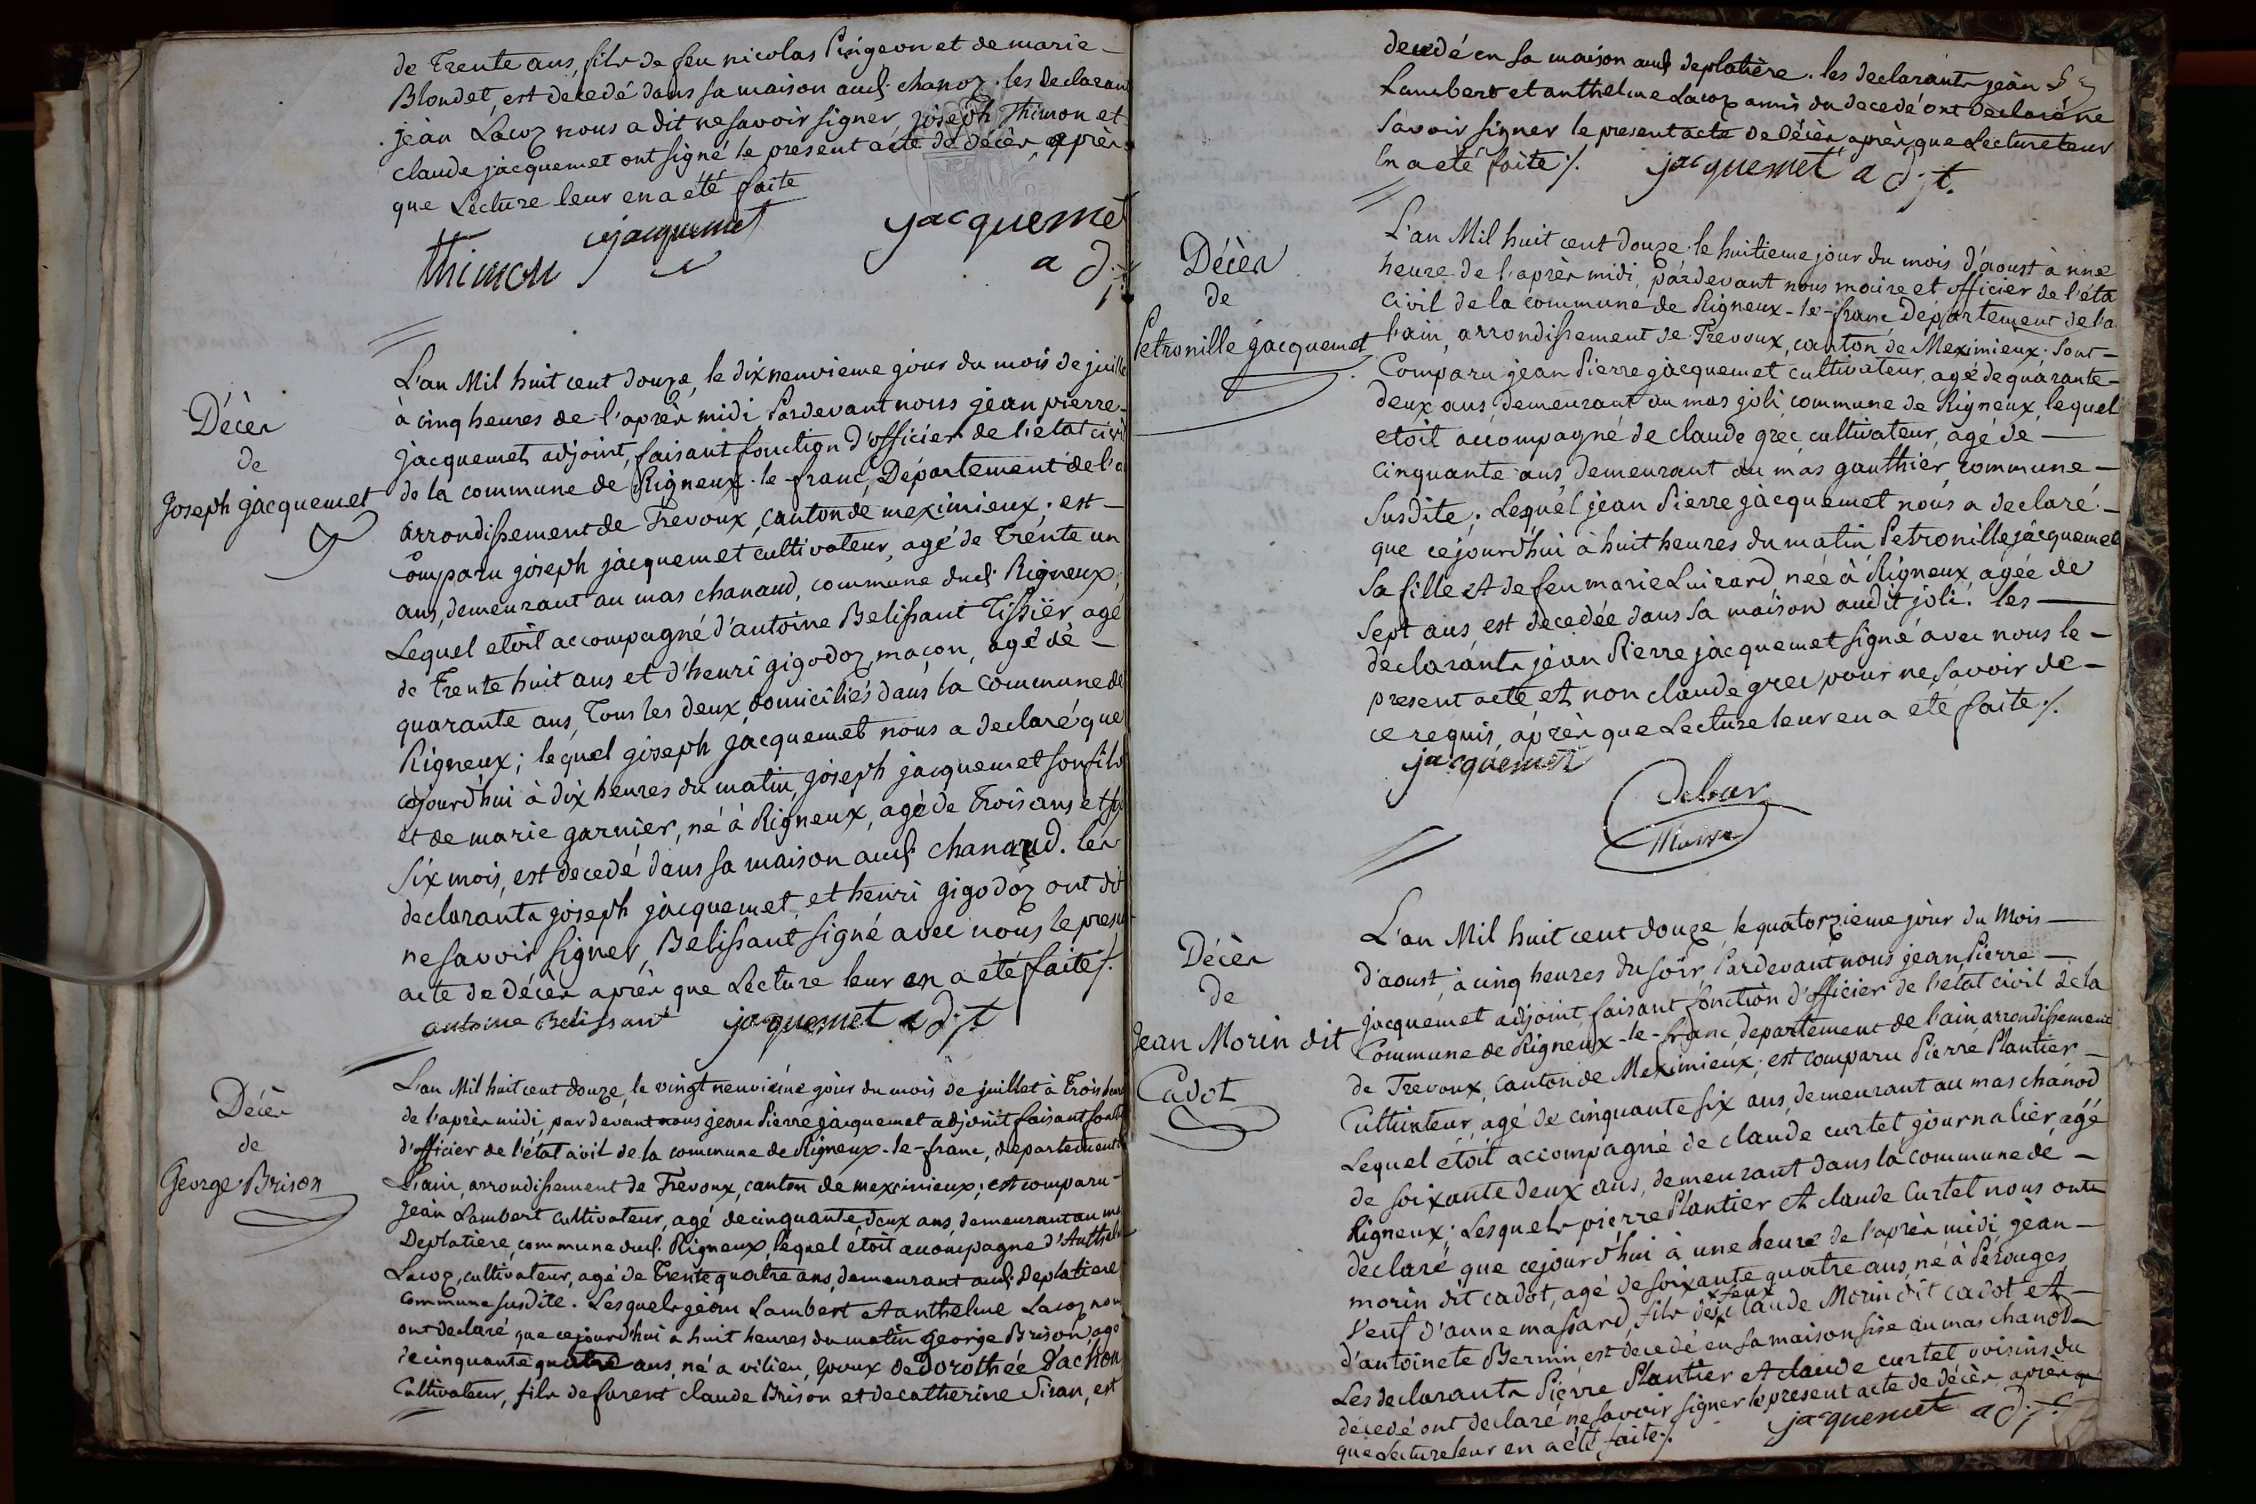 de Trente ans, fils de feu nicolas Pirigeon et de marie
Blondet, est decedé dans sa maison aud. chanoz. les declarans
jean Lacoz nous a dit ne savoir signer joseph Thimon et
claude jacquemet ont signé le present acte de décès après
que Lecture leur en a été faite
Thimon cjacquemet jacquemet
adjt
Décès
de
Joseph jacquemet
L'an Mil huit cent douze, le dix neuvieme jour du mois de juillet
à cinq heures de l'après midi Pardevant nous jean pierre
jacquemet adjoint, faisant fonction d'officier de l'état civil
de la commune de Rigneux-le-franc, Département de l'a
arrondissement de Trevoux, canton de meximieux; est
Comparu joseph jacquemet cultivateur, agé de Trente un
ans, demeurant au mas chanaud, commune dud. Rigneux,
Lequel etoit accompagné d'antoine Belissant Tissier agé
de Trente huit ans et d'henri gigodoz, maçon, agé de
quarante ans, Tous les deux domiciliés dans la commune de
Rigneux; lequel joseph jacquemet nous a declaré que
cejourd'hui à dix heures du matin, joseph jacquemet son fils
et de marie garnier, né à Rigneux, agé de Trois ans et
Six mois, est decedé dans sa maison aud. chanaud. les
declarants joseph jacquemet, et henri gigodoz ont dit
ne savoir signer, Belissant signé avec nous le present
acte de décès après que Lecture leur en a été faite/.
antoine Belissant jacquemet adjt
Décès
de
George Brison
L'an Mil huit cent douze, le vingt neuvieme jour du mois de juillet à Trois heures
de l'après midi, par devant nous jean Pierre jacquemet adjoint faisant fonction
d'officier de l'état civil de la commune de Rigneux-le-franc, departement de
L'ain, arrondissement de Trevoux, canton de meximieux; est comparu
jean Lambert cultivateur, agé de cinquante deux ans, demeurant au mas
Deplatière, commune dud. Rigneux, lequel étoit accompagné d'Anthelme
Lacoz, cultivateur, agé de Trente quatre ans, demeurant aud. Deplatiere
commune susdite. Lesquels jean Lambert et anthelme Lacoz nous
ont declaré que cejourd'hui à huit heures du matin George Brison agé
de cinquante quatre ans, né a vilieu, Epoux de Dorothée Dachon
Cultivateur, fils de furent claude Brison et de catherine Siran, est
decedé en sa maison aud. deplatière. les declarants jean
Lambert et anthelme Lacoz amis du decedé ont declaré ne
savoir signer le present acte de Décès, après que Lecture leur
en a eté faite/. jacquemet adjt.
Décès
de
Petronille jacquemet
L'an Mil huit cent douze, le huitieme jour du mois d'aoust à une
heure de l'après midi, pardevant nous maire et officier de l'éta
civil de la commune de Rigneux-le-franc Département de l'a
l'ain, arrondissement de Trevoux, canton de Meximieux. sont
Comparu jean Pierre jacquemet cultivateur, agé de quarante
deux ans, demeurant au mas joli, commune de Rigneux, lequel
etoit accompagné de claude grec cultivateur, agé de
cinquante ans, demeurant au mas gauthier, commune
susdite. Lequel jean Pierre jacquemet nous a declaré
que cejourd'hui à huit heures du matin Petronille jacquemet
sa fille et de feu marie Luizard née à Rigneux, agée de
sept ans, est decedée dans sa maison audit joli. les
declarants jean Pierre jacquemet signé avec nous le
present acte et non claude grec pour ne savoir de
ce requis, après que Lecture leur en a été faite/.
jacquemet
Debar
Maire
Décès
de
Jean Morin dit
Cadot
L'an Mil huit cent douze, le quatorzieme jour du Mois
d'aoust, à cinq heures du soir, Pardevant nous jean Pierre
jacquemet adjoint faisant fonction d'officier de l'état civil de la
Commune de Rigneux-le-franc, departement de l'ain arrondissement
de Trevoux, canton de Meximieux; est comparu Pierre Plantier
Cultivateur, agé de cinquante six ans, demeurant au mas chanod
Lequel étoit accompagné de claude curtet journalier, agé
de soixante deux ans, demeurant dans la commune de
Rigneux; Lesquels pierre Plantier et claude Curtet nous ont
declaré que cejourd'hui à une heure de l'après midi, jean
morin dit cadot, agé de soixante quatre ans, né à Pérouges
Veuf d'anne massard, fils de feux claude Morin dit cadot et
d'antoinete Bernin, est decedé en sa maison sise au mas chanod
Les declarants Pierre Plantier et claude curtet voisins du
décedé ont declaré ne savoir signer le present acte de décès, après que
que Lecture leur en a été faite/. jacquemet adjt